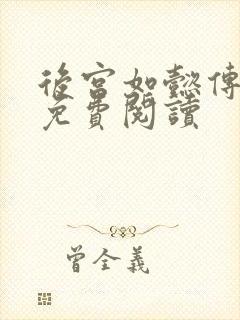 後宮如懿傳
免費閱讀
曾全義